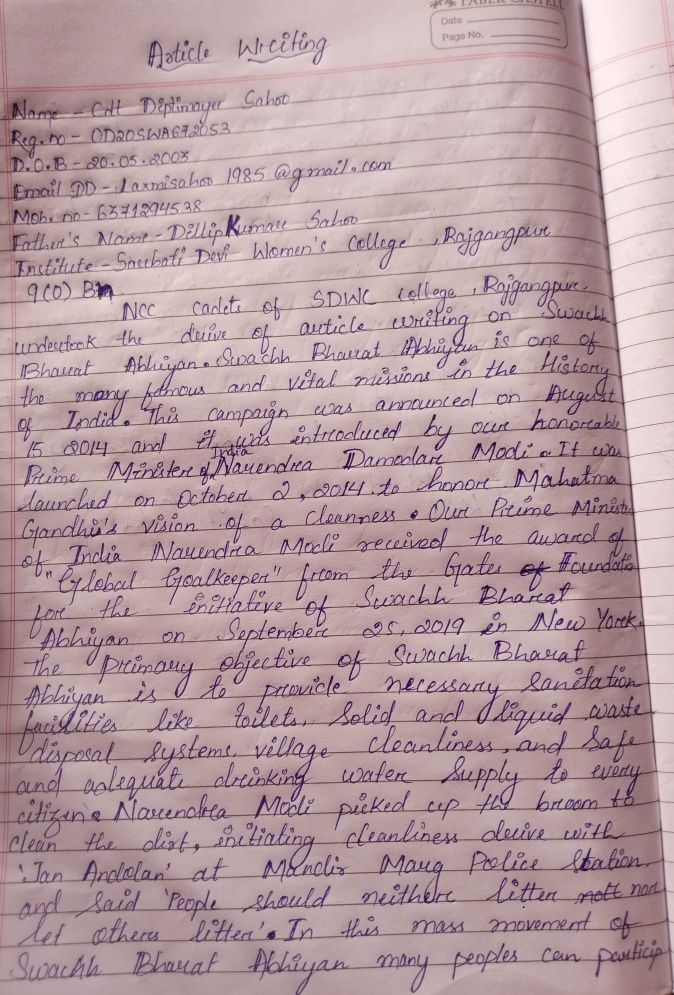 FABER CASTELL
Date
Page No.
Article Writing
Name - Cdt Diptimayee Sahoo
Reg. no - OD20SWA672053
D.O.B - 20.05.2003
Email ID - Laxmisahoo 1985 @gmail.com
Mob. no - 6371294538
Father's Name - Dillip Kumar Sahoo
Institute - Saubati Devi Women's College, Rajgangpur
9(O) Bn
NCC cadets of SDWC College, Rajgangpur
undertook the drive of article writing on Swachh
Bharat Abhiyan. Swachh Bharat Abhiyan is one of
the many famous and vital missions in the History
of India. This campaign was announced on August
15 2014 and it was introduced by our honorable
Prime Minister of India Narendra Damodar Modi. It was
launched on October 2, 2014 to honor Mahatma
Gandhi's vision of a cleanness. Our Prime Ministe
of India Narendra Modi received the award of
"Global Goalkeeper" from the Gates of Foundatio
for the initiative of Swachh Bharat
Abhiyan on September 25, 2019 in New York.
The primary objective of Swachh Bharat
Abhiyan is to provide necessary sanitation
facilities like toilets, solid and liquid waste
disposal systems, village cleanliness, and safe
and adequate drinking water supply to every
citizen. Narendra Modi picked up the broom to
clean the dirt, initiating cleanliness drive with
'Jan Andolan' at Mandir Marg Police Station
and said 'People should neither litter nott nor
let others litter'. In this mass movement of
Swachh Bharat Abhiyan many peoples can particip